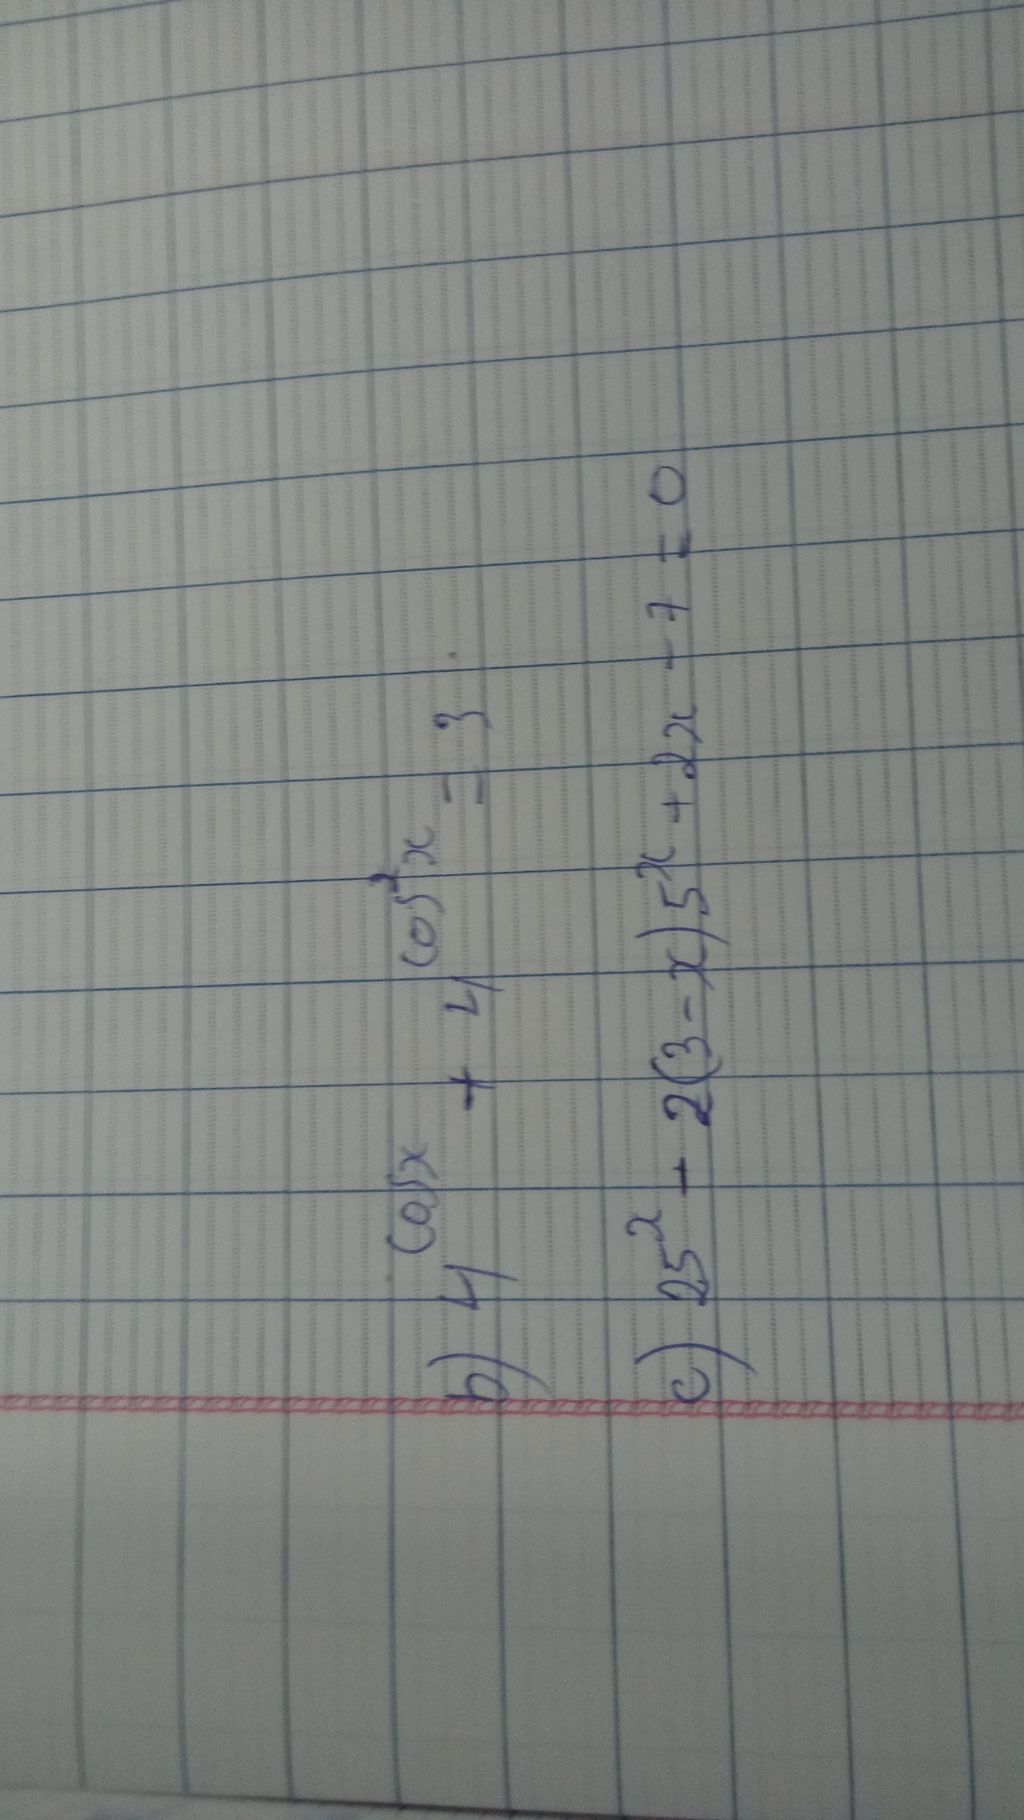 b) 4^{cosx} + 4^{cos²x} = 3
c) 25^x - 2(3-x)5^x + 2x - 7 = 0